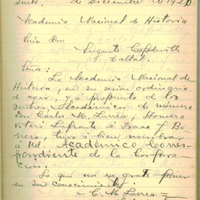 de diciembre de 192
Academia Nacional de Historia
Señor Don
Augusto Capdeville
Taltal.
Señor:
La Academia Nacional de
Historia, en su sesión ordinaria
de ayer, a
señores Académicos de número
Don Carlos M. Larrea, Homero
Viteri Lafronte e Isaac J. Ba
rrera, tuvo a bien nombrar
a Ud. Académico Corres-
pondiente de la Corpora
ción.
Lo que me es grato poner
en su conocimiento.
C. M. Larrea